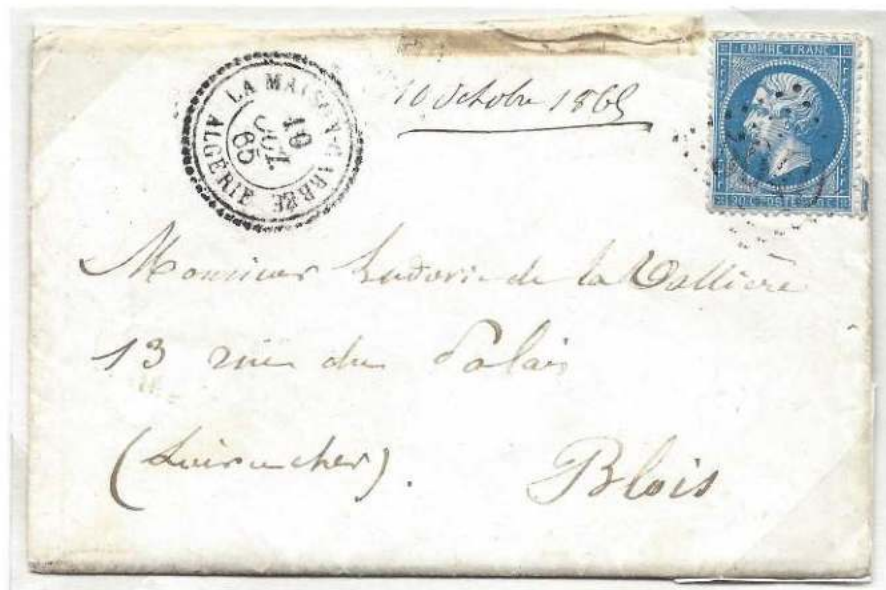 LA MAISON-CARRÉE
10
OCT.
65
ALGÉRIE
10 octobre 1865
EMPIRE FRANC
20 C POSTES 20 C
Monsieur Ludovic de la Vallière
13 rue du Palais
(Loir et cher).
Blois